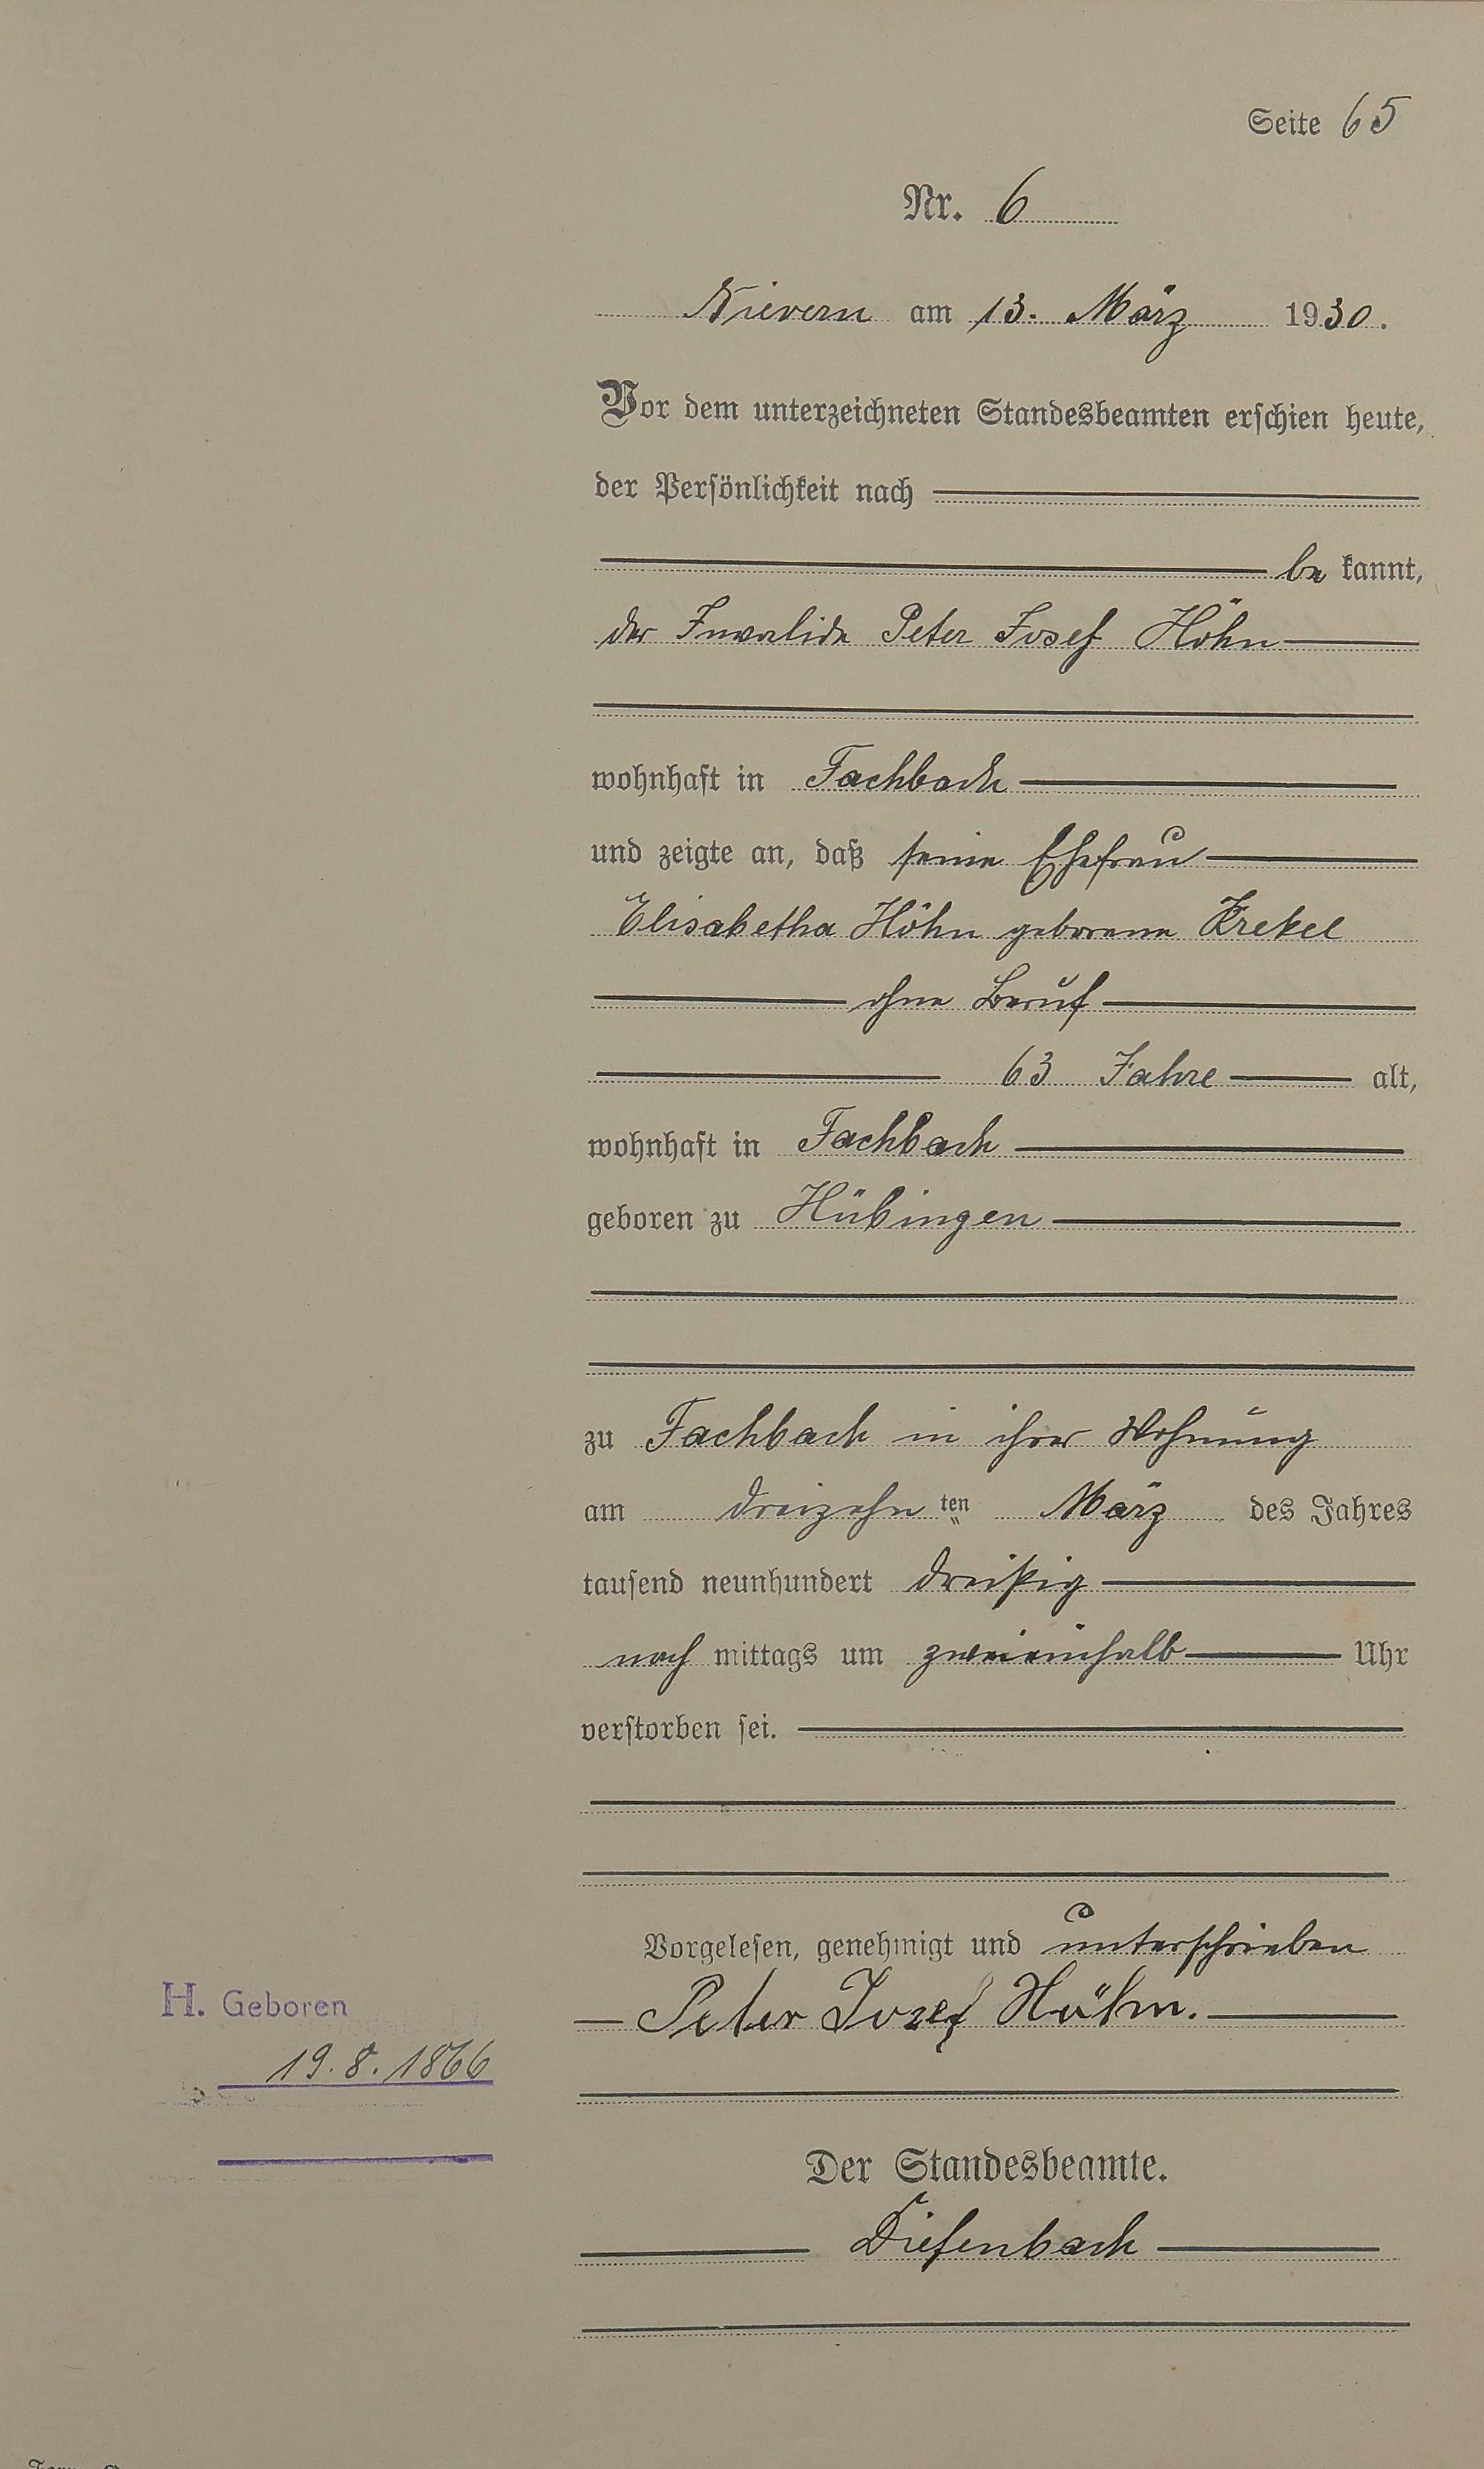 Seite 65
Nr. 6
Nievern am 13. März 1930.
Vor dem unterzeichneten Standesbeamten erschien heute,
der Persönlichkeit nach
be kannt,
der Invalide Peter Josef Höhn
wohnhaft in Fachbach
und zeigte an, daß seine Ehefrau
Elisabetha Höhn geborene Krekel
ohne Beruf
63 Jahre alt,
wohnhaft in Fachbach
geboren zu Hübingen
zu Fachbach in ihrer Wohnung
am dreizehn ten März des Jahres
tausend neunhundert dreißig
nach mittags um zweieinhalb Uhr
verstorben sei.
Vorgelesen, genehmigt und unterschrieben
Peter Josef Höhn.
H. Geboren
19.8.1866
Der Standesbeamte.
Diefenbach